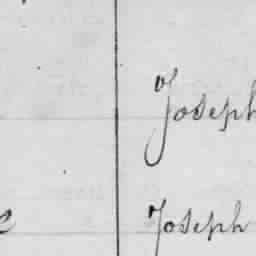 Joseph
Joseph